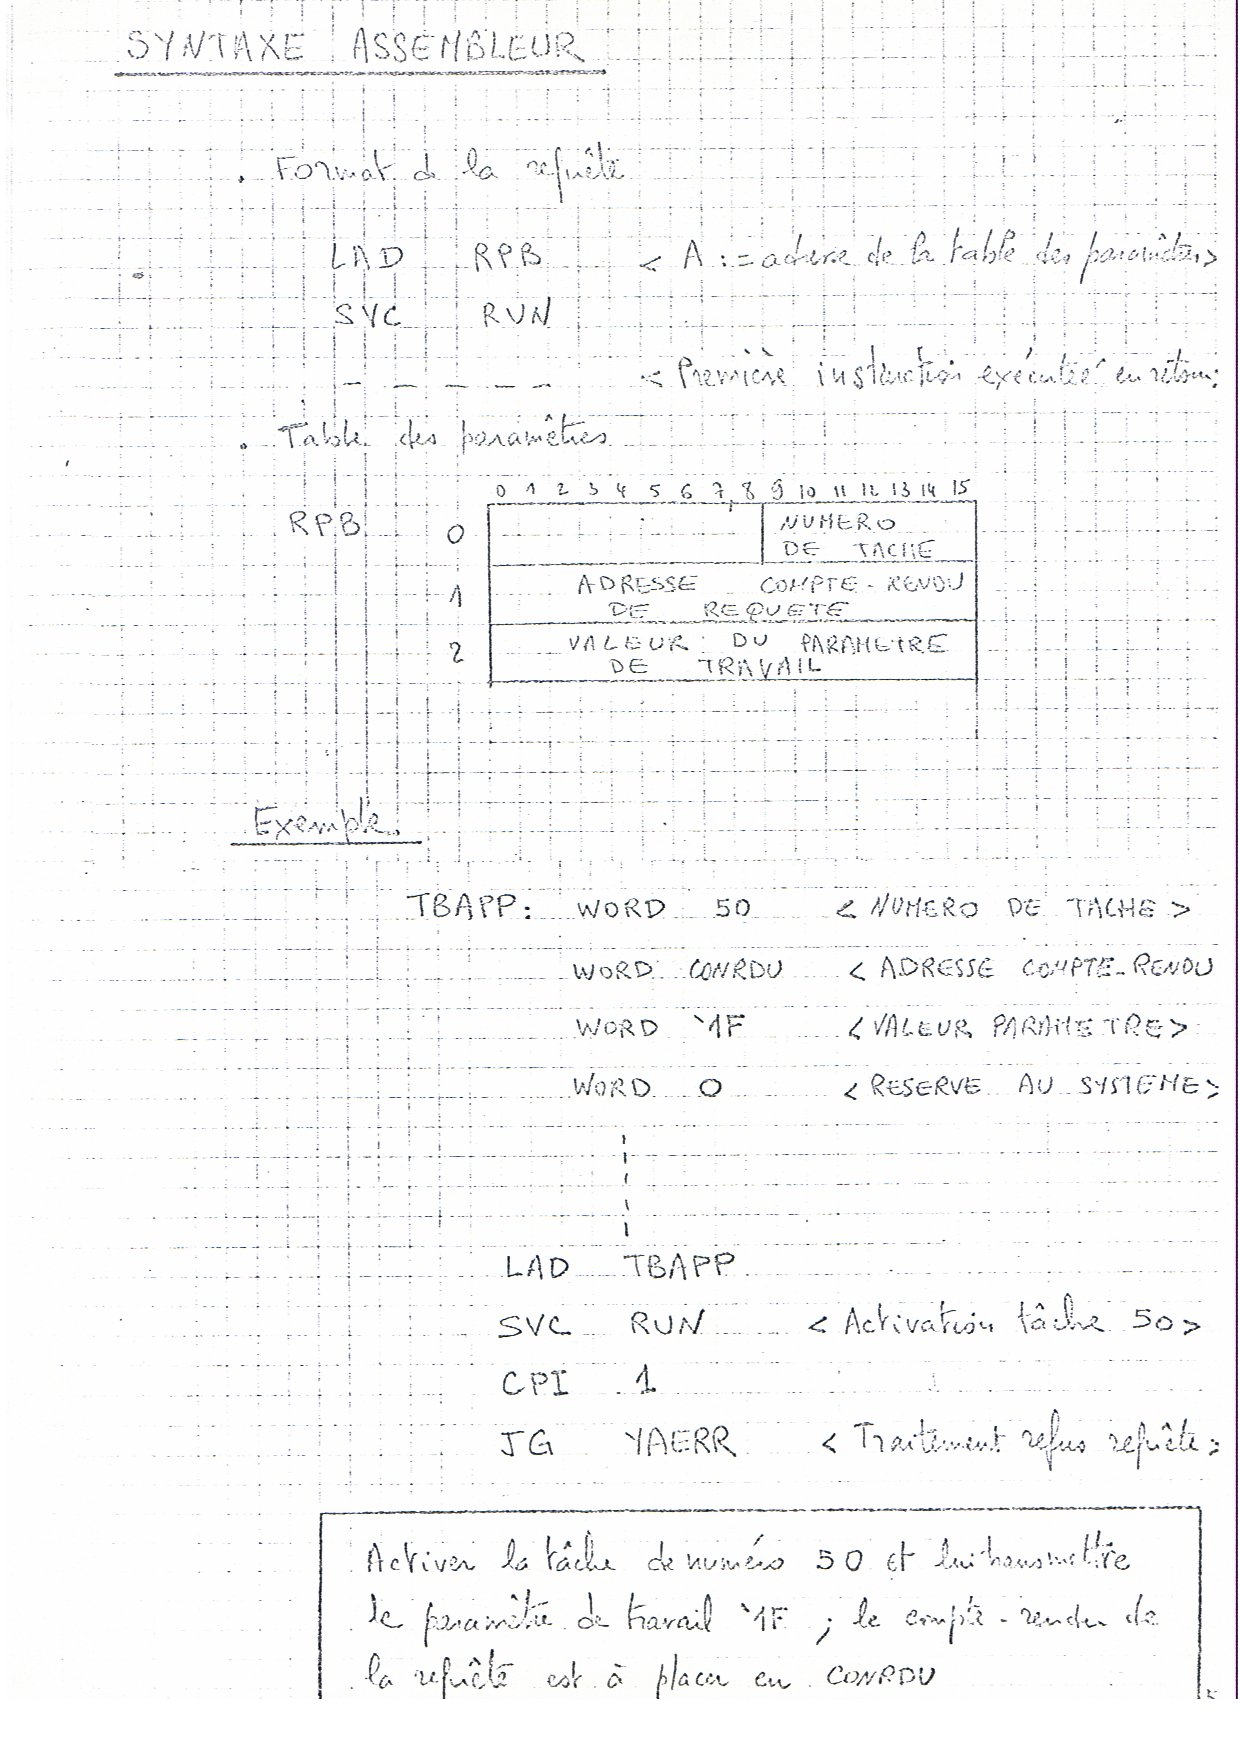 SYNTAXE ASSEMBLEUR
. Format de la requête
LAD RPB < A := adresse de la table des paramètres>
SVC RUN
- - - - - - - < Première instruction exécutée en retour>
. Table des paramètres
0 1 2 3 4 5 6 7 8 9 10 11 12 13 14 15
RPB 0 NUMERO
DE TACHE
1 ADRESSE COMPTE-RENDU
DE REQUETE
2 VALEUR DU PARAMETRE
DE TRAVAIL
Exemple.
TBAPP: WORD 50 < NUMERO DE TACHE >
WORD CONRDU < ADRESSE COMPTE-RENDU
WORD '1F < VALEUR PARAMETRE>
WORD 0 < RESERVE AU SYSTEME>
LAD TBAPP
SVC RUN < Activation tâche 50>
CPI 1
JG YAERR < Traitement refus requête>
Activer la tâche de numéro 50 et lui transmettre
le paramètre de travail '1F ; le compte-rendu de
la requête est à placer en CONRDU